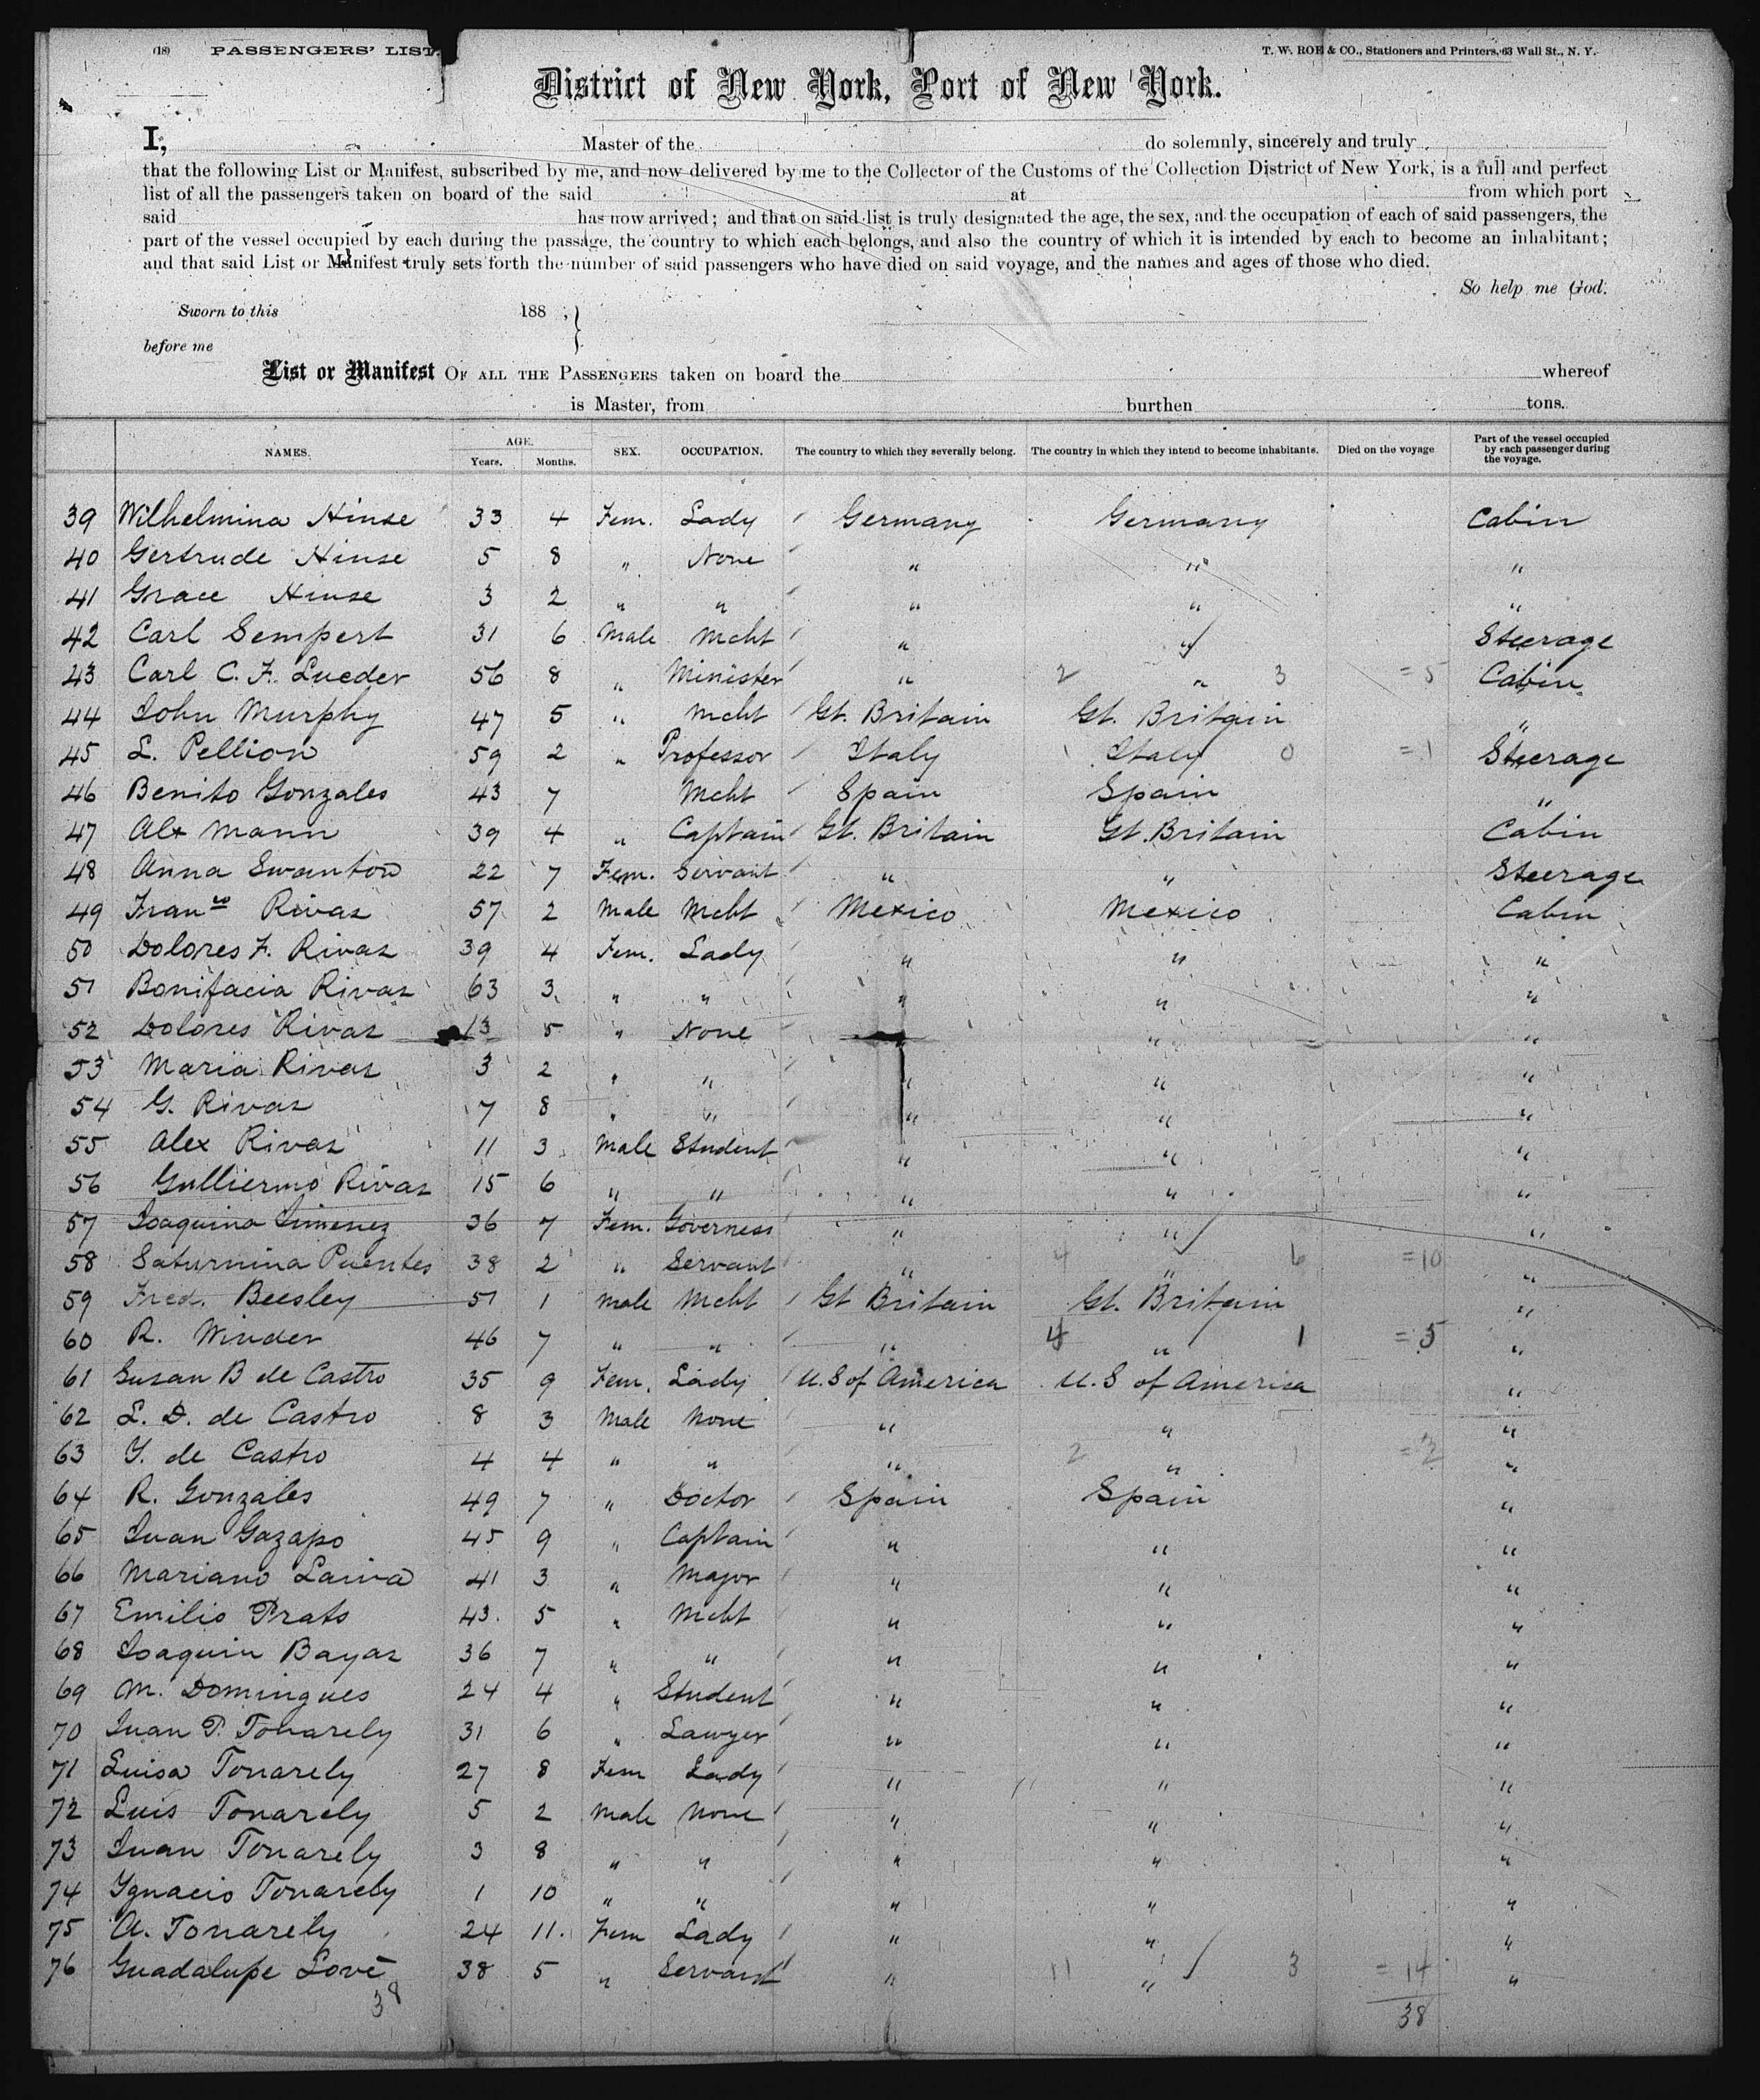 (18) PASSENGERS' LIST. T. W. ROE & CO., Stationers and Printers, 63 Wall St., N. Y.
District of New York, Port of New York.
I, Master of the do solemnly, sincerely and truly
that the following List or Manifest, subscribed by me, and now delivered by me to the Collector of the Customs of the Collection District of New York, is a full and perfect
list of all the passengers taken on board of the said at from which port
said has now arrived; and that on said list is truly designated the age, the sex, and the occupation of each of said passengers, the
part of the vessel occupied by each during the passage, the country to which each belongs, and also the country of which it is intended by each to become an inhabitant;
and that said List or Manifest truly sets forth the number of said passengers who have died on said voyage, and the names and ages of those who died.
So help me God.
Sworn to this 188 ,
before me
List or Manifest OF ALL THE PASSENGERS taken on board the whereof
is Master, from burthen tons.
NAMES. AGE. Years. Months. SEX. OCCUPATION. The country to which they severally belong. The country in which they intend to become inhabitants. Died on the voyage Part of the vessel occupied by each passenger during the voyage.
39 Wilhelmina Hinse 33 4 Fem. Lady Germany Germany Cabin
40 Gertrude Hinse 5 8 " None " " "
41 Grace Hinse 3 2 " " " " "
42 Carl Sempert 31 6 Male Mcht " " Steerage
43 Carl C. F. Lueder 56 8 " Minister " 2 " 3 = 5 Cabin
44 John Murphy 47 5 " Mcht Gt. Britain Gt. Britain "
45 L. Pellion 59 2 " Professor Italy 1 Italy 0 = 1 Steerage
46 Benito Gonzales 43 7 Mcht Spain Spain "
47 Alx Mann 39 4 " Captain Gt. Britain Gt. Britain Cabin
48 Anna Swanton 22 7 Fem. Servant " " Steerage
49 Franco Rivas 57 2 Male Mcht Mexico Mexico Cabin
50 Dolores F. Rivas 39 4 Fem. Lady " " "
51 Bonifacia Rivas 63 3 " " " " "
52 Dolores Rivas 13 5 " None " " "
53 Maria Rivas 3 2 " " " " "
54 G. Rivas 7 8 " " " " "
55 Alex Rivas 11 3 Male Student " " "
56 Gulliermo Rivas 15 6 " " " " "
57 Joaquina Jimenez 36 7 Fem. Governess " " "
58 Saturnina Puentes 38 2 " Servant " 4 " 6 = 10 "
59 Fred. Beesley 51 1 Male Mcht Gt Britain Gt. Britain "
60 R. Winder 46 7 " " " 4 " 1 = 5 "
61 Susan B de Castro 35 9 Fem. Lady U.S of America U.S of America "
62 L. D. de Castro 8 3 Male None " " "
63 Y. de Castro 4 4 " " " 2 " 1 = 3 "
64 R. Gonzales 49 7 " Doctor Spain Spain "
65 Juan Gazapo 45 9 " Captain " " "
66 Mariano Laiva 41 3 " Major " " "
67 Emilio Prats 43 5 " Mcht " " "
68 Joaquin Bayas 36 7 " " " " "
69 M. Domingues 24 4 " Student " " "
70 Juan P. Tonarely 31 6 " Lawyer " " "
71 Luisa Tonarely 27 8 Fem Lady " " "
72 Luis Tonarely 5 2 Male None " " "
73 Juan Tonarely 3 8 " " " " "
74 Ygnacio Tonarely 1 10 " " " " "
75 A. Tonarely 24 11 Fem Lady " " "
76 Guadalupe Love 38 5 " Servant " 11 " 3 = 14 "
38 38